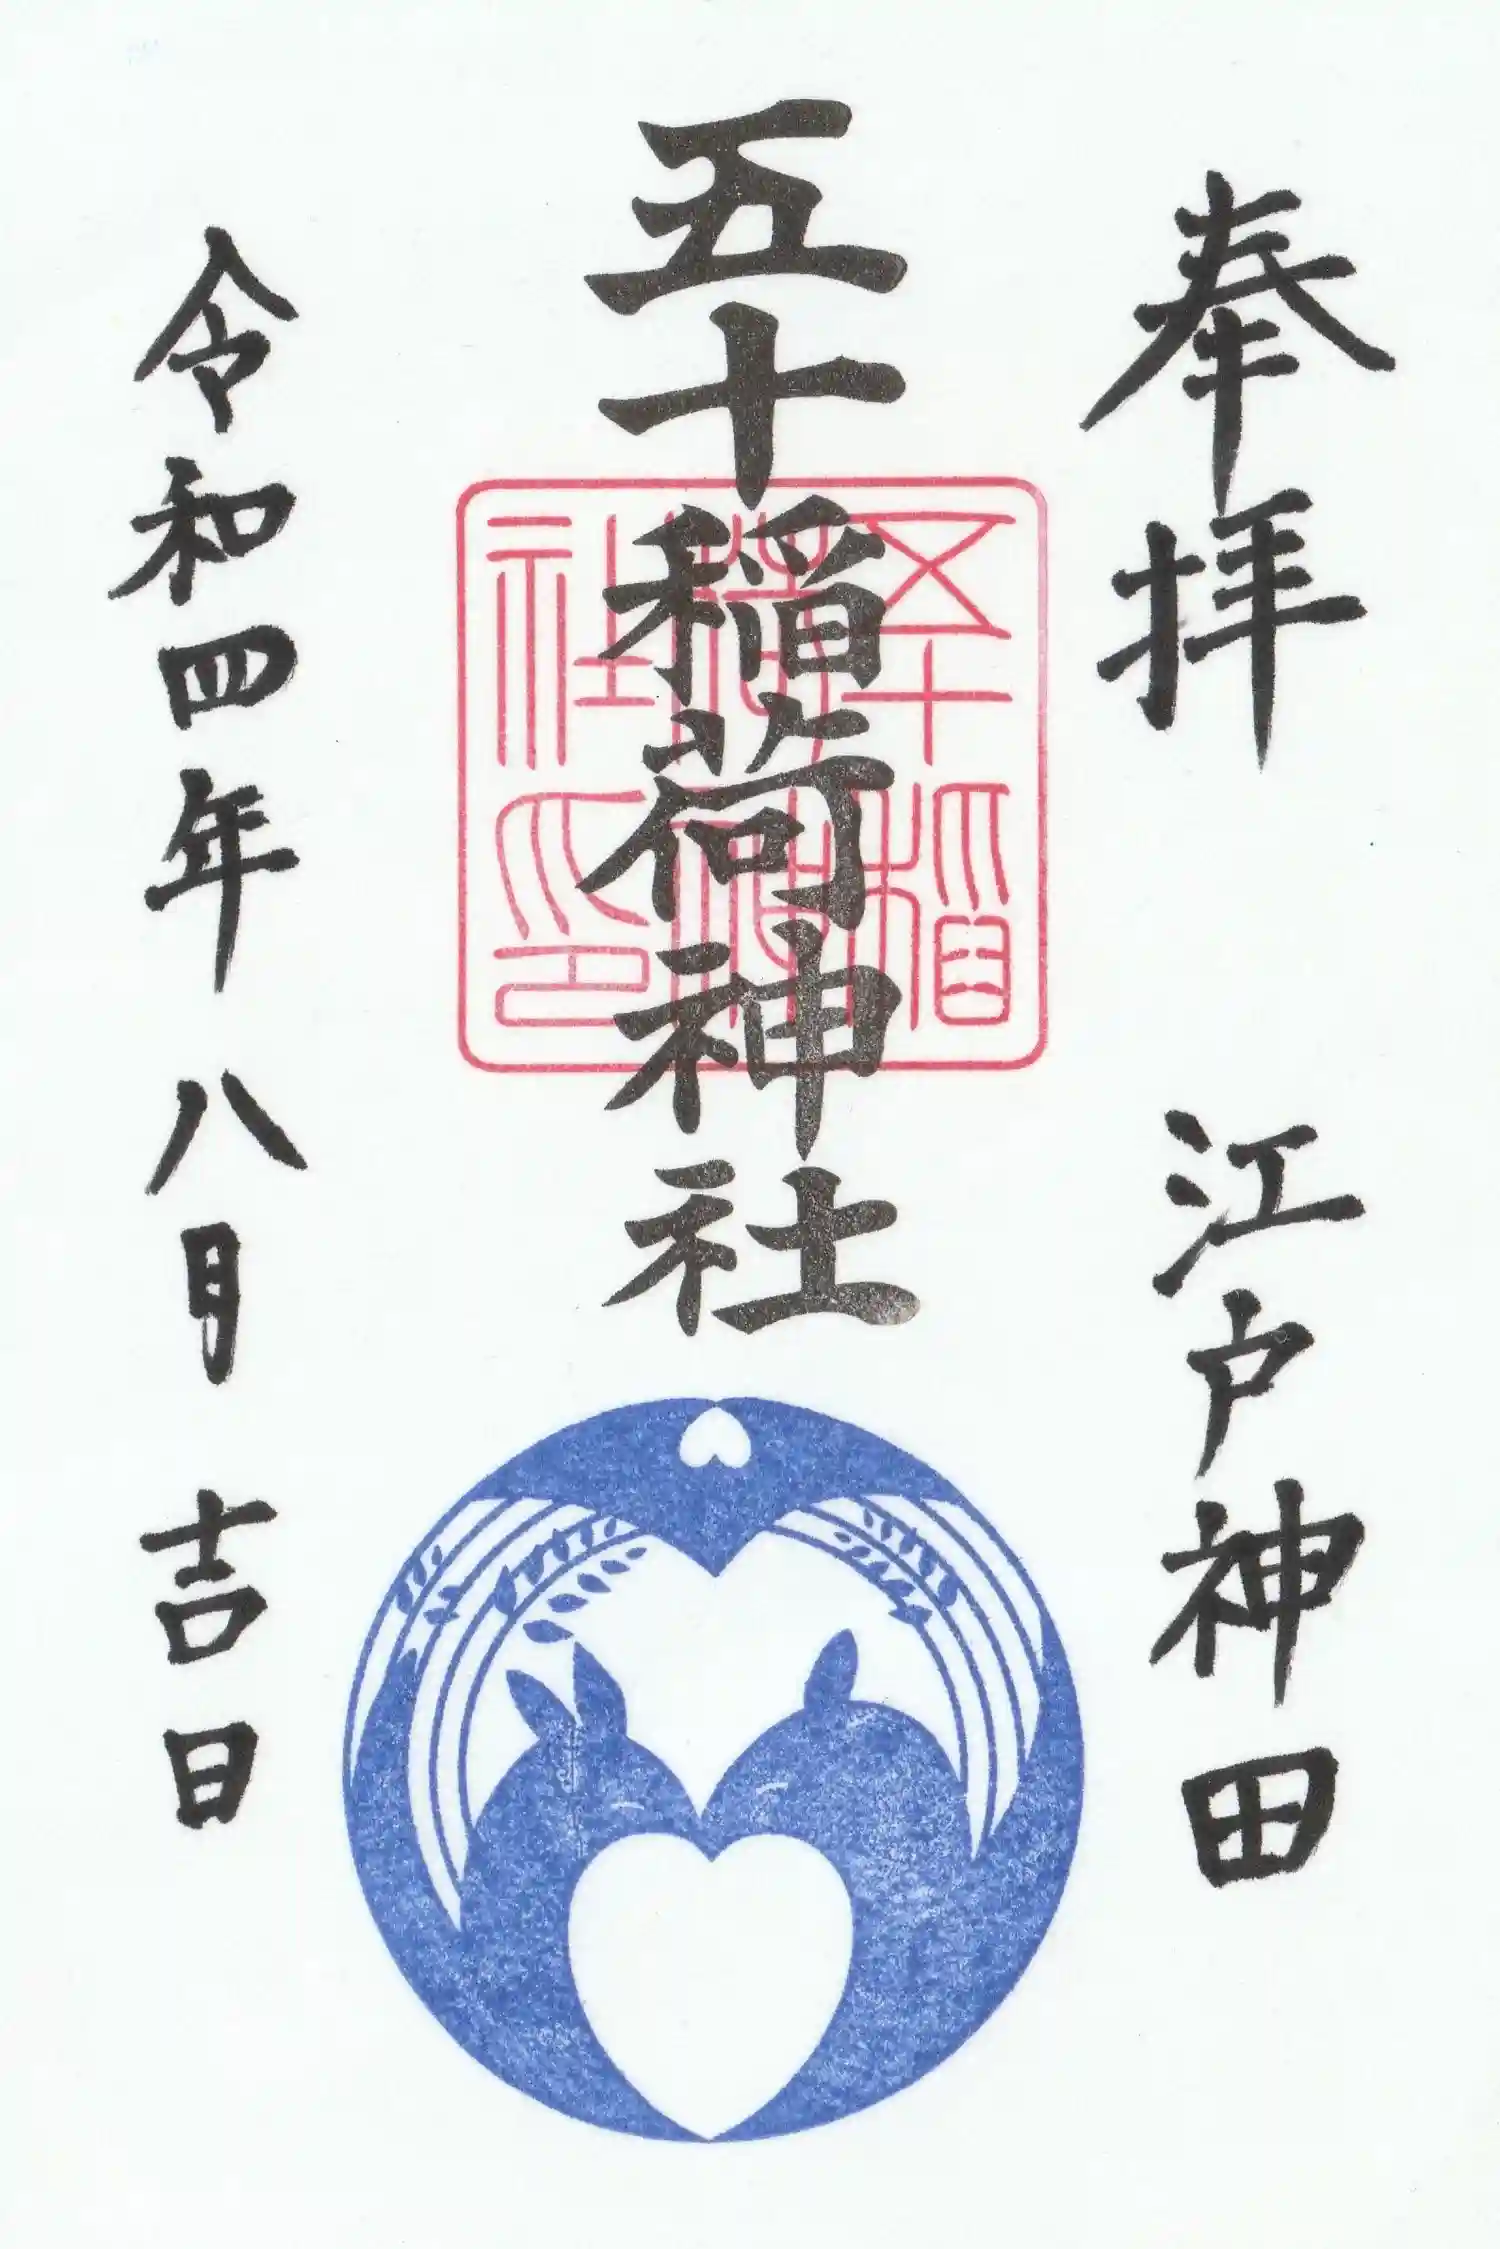 奉拝 江戸神田
五十稲荷神社
五十稲荷神社印
令和四年八月吉日